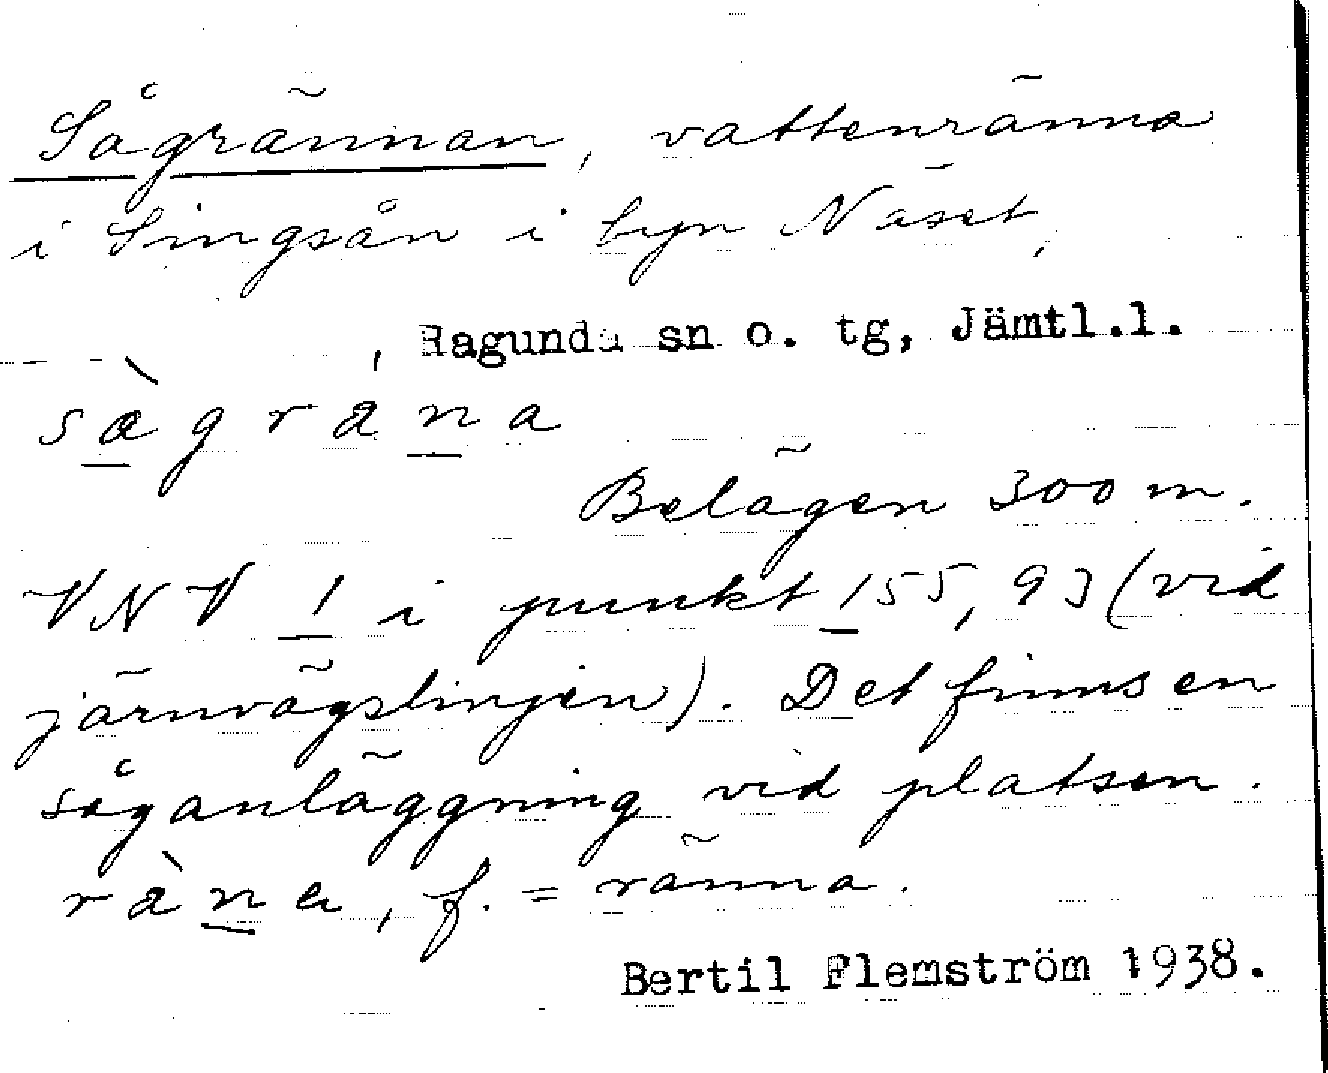 Sågrännan, vattenränna
i Singsån i byn Näset,
, Ragunda sn o. tg, Jämtl.l.
sàgrana
Belägen 300 m.
VNV 1 i punkt 155,93 (vid
järnvägslinjen). Det finns en
såganläggning vid platsen.
ràna, f. = ränna.
Bertil Flemström 1938.